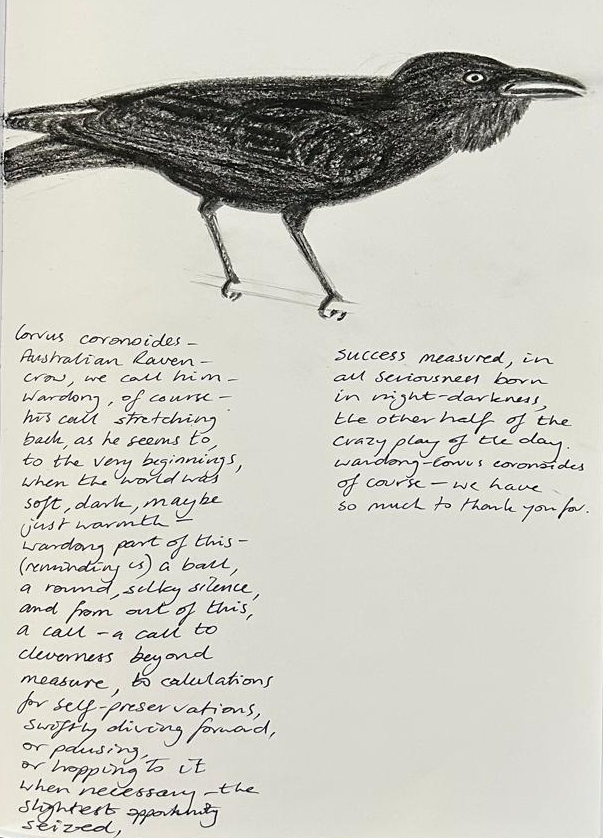 Corvus coronoides –
Australian Raven –
crow, we call him –
Wardong, of course –
his call stretching
back, as he seems to,
to the very beginnings,
when the world was
soft, dark, maybe
just warmth –
Wardong part of this –
(reminding us) a ball,
a round, silky silence,
and from out of this,
a call – a call to
cleverness beyond
measure, to calulations
for self-preservations,
swiftly diving forward,
or pausing,
or hopping to it
when necessary – the
slightest opportunity
seized,
success measured, in
all seriousness born
in night-darkness,
the other half of the
crazy play of the day.
Wardong-Corvus coronoides
of course – we have
so much to thank you for.